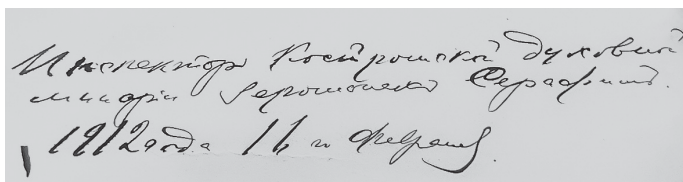 Инспекторъ Костромской духовной
минаріи Іеромонахъ Серафимъ.
1912 года 16 го Февраля.